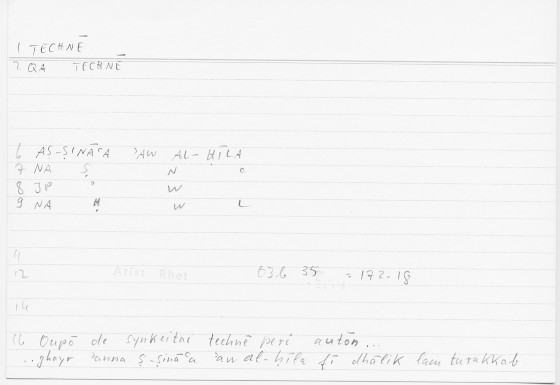 1 TECHNĒ
2 QA TECHNĒ
6 AṢ-ṢINĀʿA ʾAW AL-ḤĪLA
7 NA Ṣ N
8 JP ʾ W
9 NA Ḥ W L
4
12 Arist Rhet 03.b 35 = 172.18
14
16 Oupō de synkeitai technē peri autōn...
..ghayr ʾanna ṣ-ṣināʿa ʾaw al-ḥīla fī dhālik lam turakkab